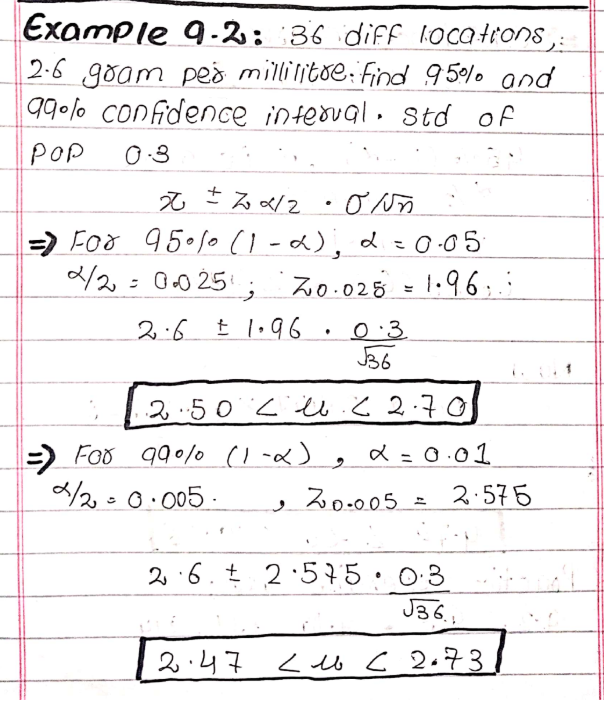 Example 9.2: 36 diff locations,
2.6 gram per millilitre. find 95% and
99% confidence interval. std of
pop 0.3
x̄ ± z α/2 · σ/√n
⇒ For 95% (1-α), α = 0.05
α/2 = 0.025 ; Z0.025 = 1.96
2.6 ± 1.96 · 0.3/√36
2.50 < μ < 2.70
⇒ For 99% (1-α), α = 0.01
α/2 = 0.005. , Z0.005 = 2.575
2.6 ± 2.575 · 0.3/√36
2.47 < μ < 2.73